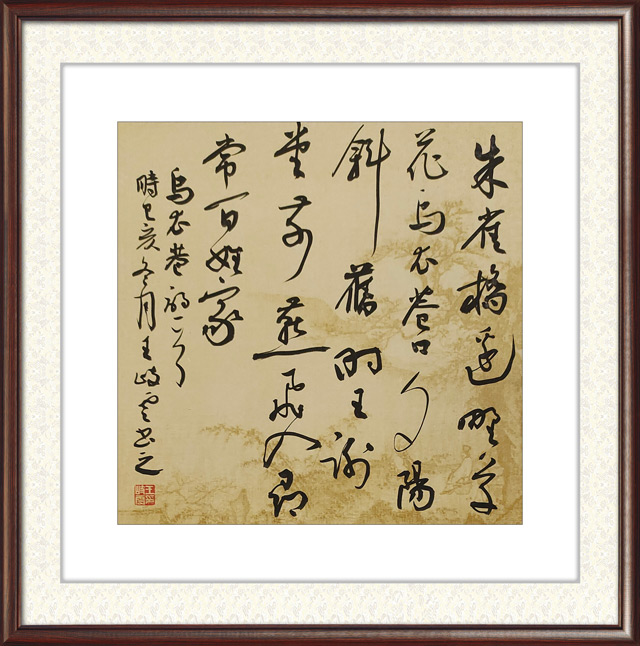 朱雀橋邊野草
花烏衣巷口夕陽
斜舊時王謝
堂前燕飛入尋
常百姓家
烏衣巷詩一首
時己亥冬月王岐雲書之